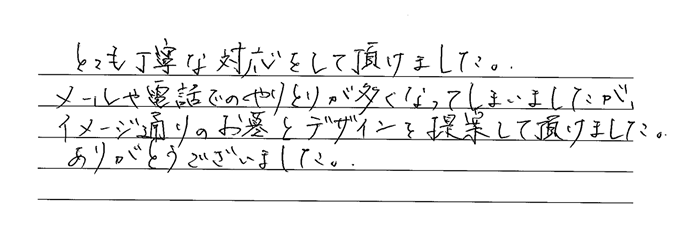 とても丁寧な対応をして頂けました。
メールや電話でのやりとりが多くなってしまいましたが、
イメージ通りのお墓とデザインを提案して頂けました。
ありがとうございました。